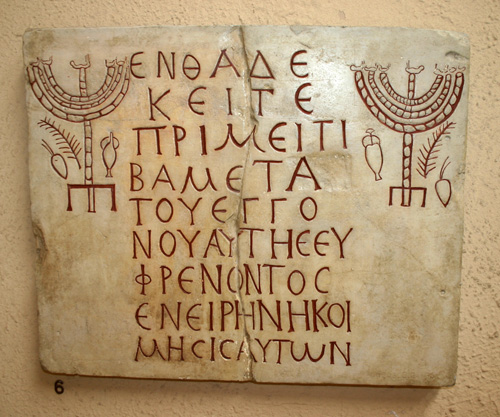 ΕΝΘΑΔΕ
ΚΕΙΤΕ
ΠΡΙΜΕΙΤΙ
ΒΑΜΕΤΑ
ΤΟΥΕΓΓΟ
ΝΟΥΑΥΤΗΕΕΥ
ΦΡΕΝΟΝΤΟC
ΕΝΕΙΡΗΝΗΚΟΙ
ΜΗCΙCΑΥΤΩΝ
6